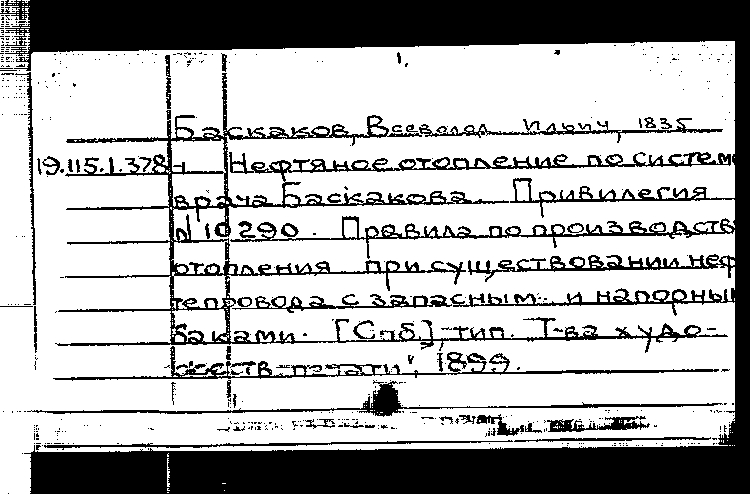 Баскаков, Всеволод Ильич, 1835
19.115.1.378 Нефтяное отопление по систем
врача Баскакова. Привилегия
N 10290. Правила по производств
отопления при существовании неф
тепровода с запасным и напорны
баками. [Спб], тип. Т-ва худо-
жеств. печати", 1899.